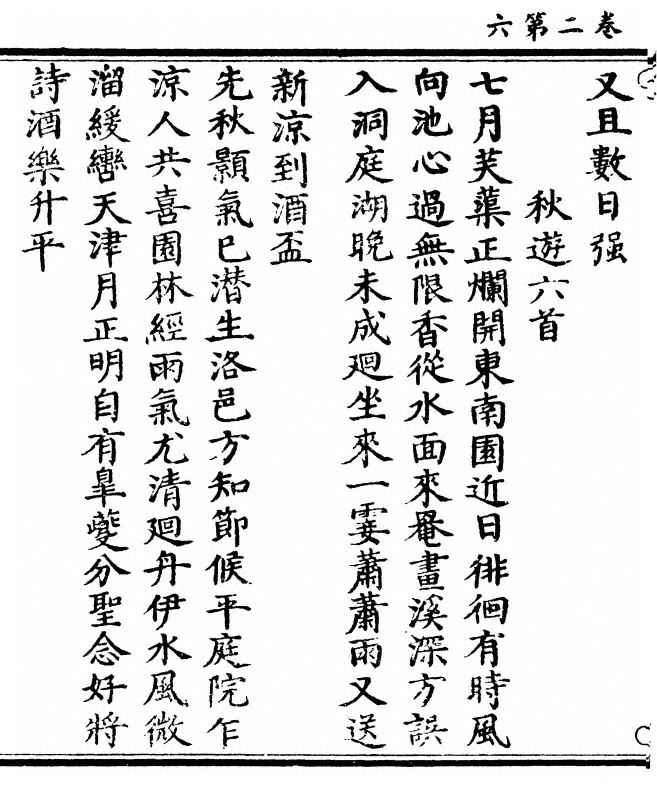 卷二第六
又且數日强
秋遊六首
七月芙蕖正爛開東南園近日徘徊有時風
向池心過無限香從水面來罨畫溪深方誤
入洞庭湖晚未成廻坐來一霎蕭蕭雨又送
新凉到酒盃
先秋顥氣已潜生洛邑方知節候平庭院乍
凉人共喜園林經雨氣尤清廻丹伊水風微
溜緩轡天津月正明自有臯夔分聖念好將
詩酒樂升平